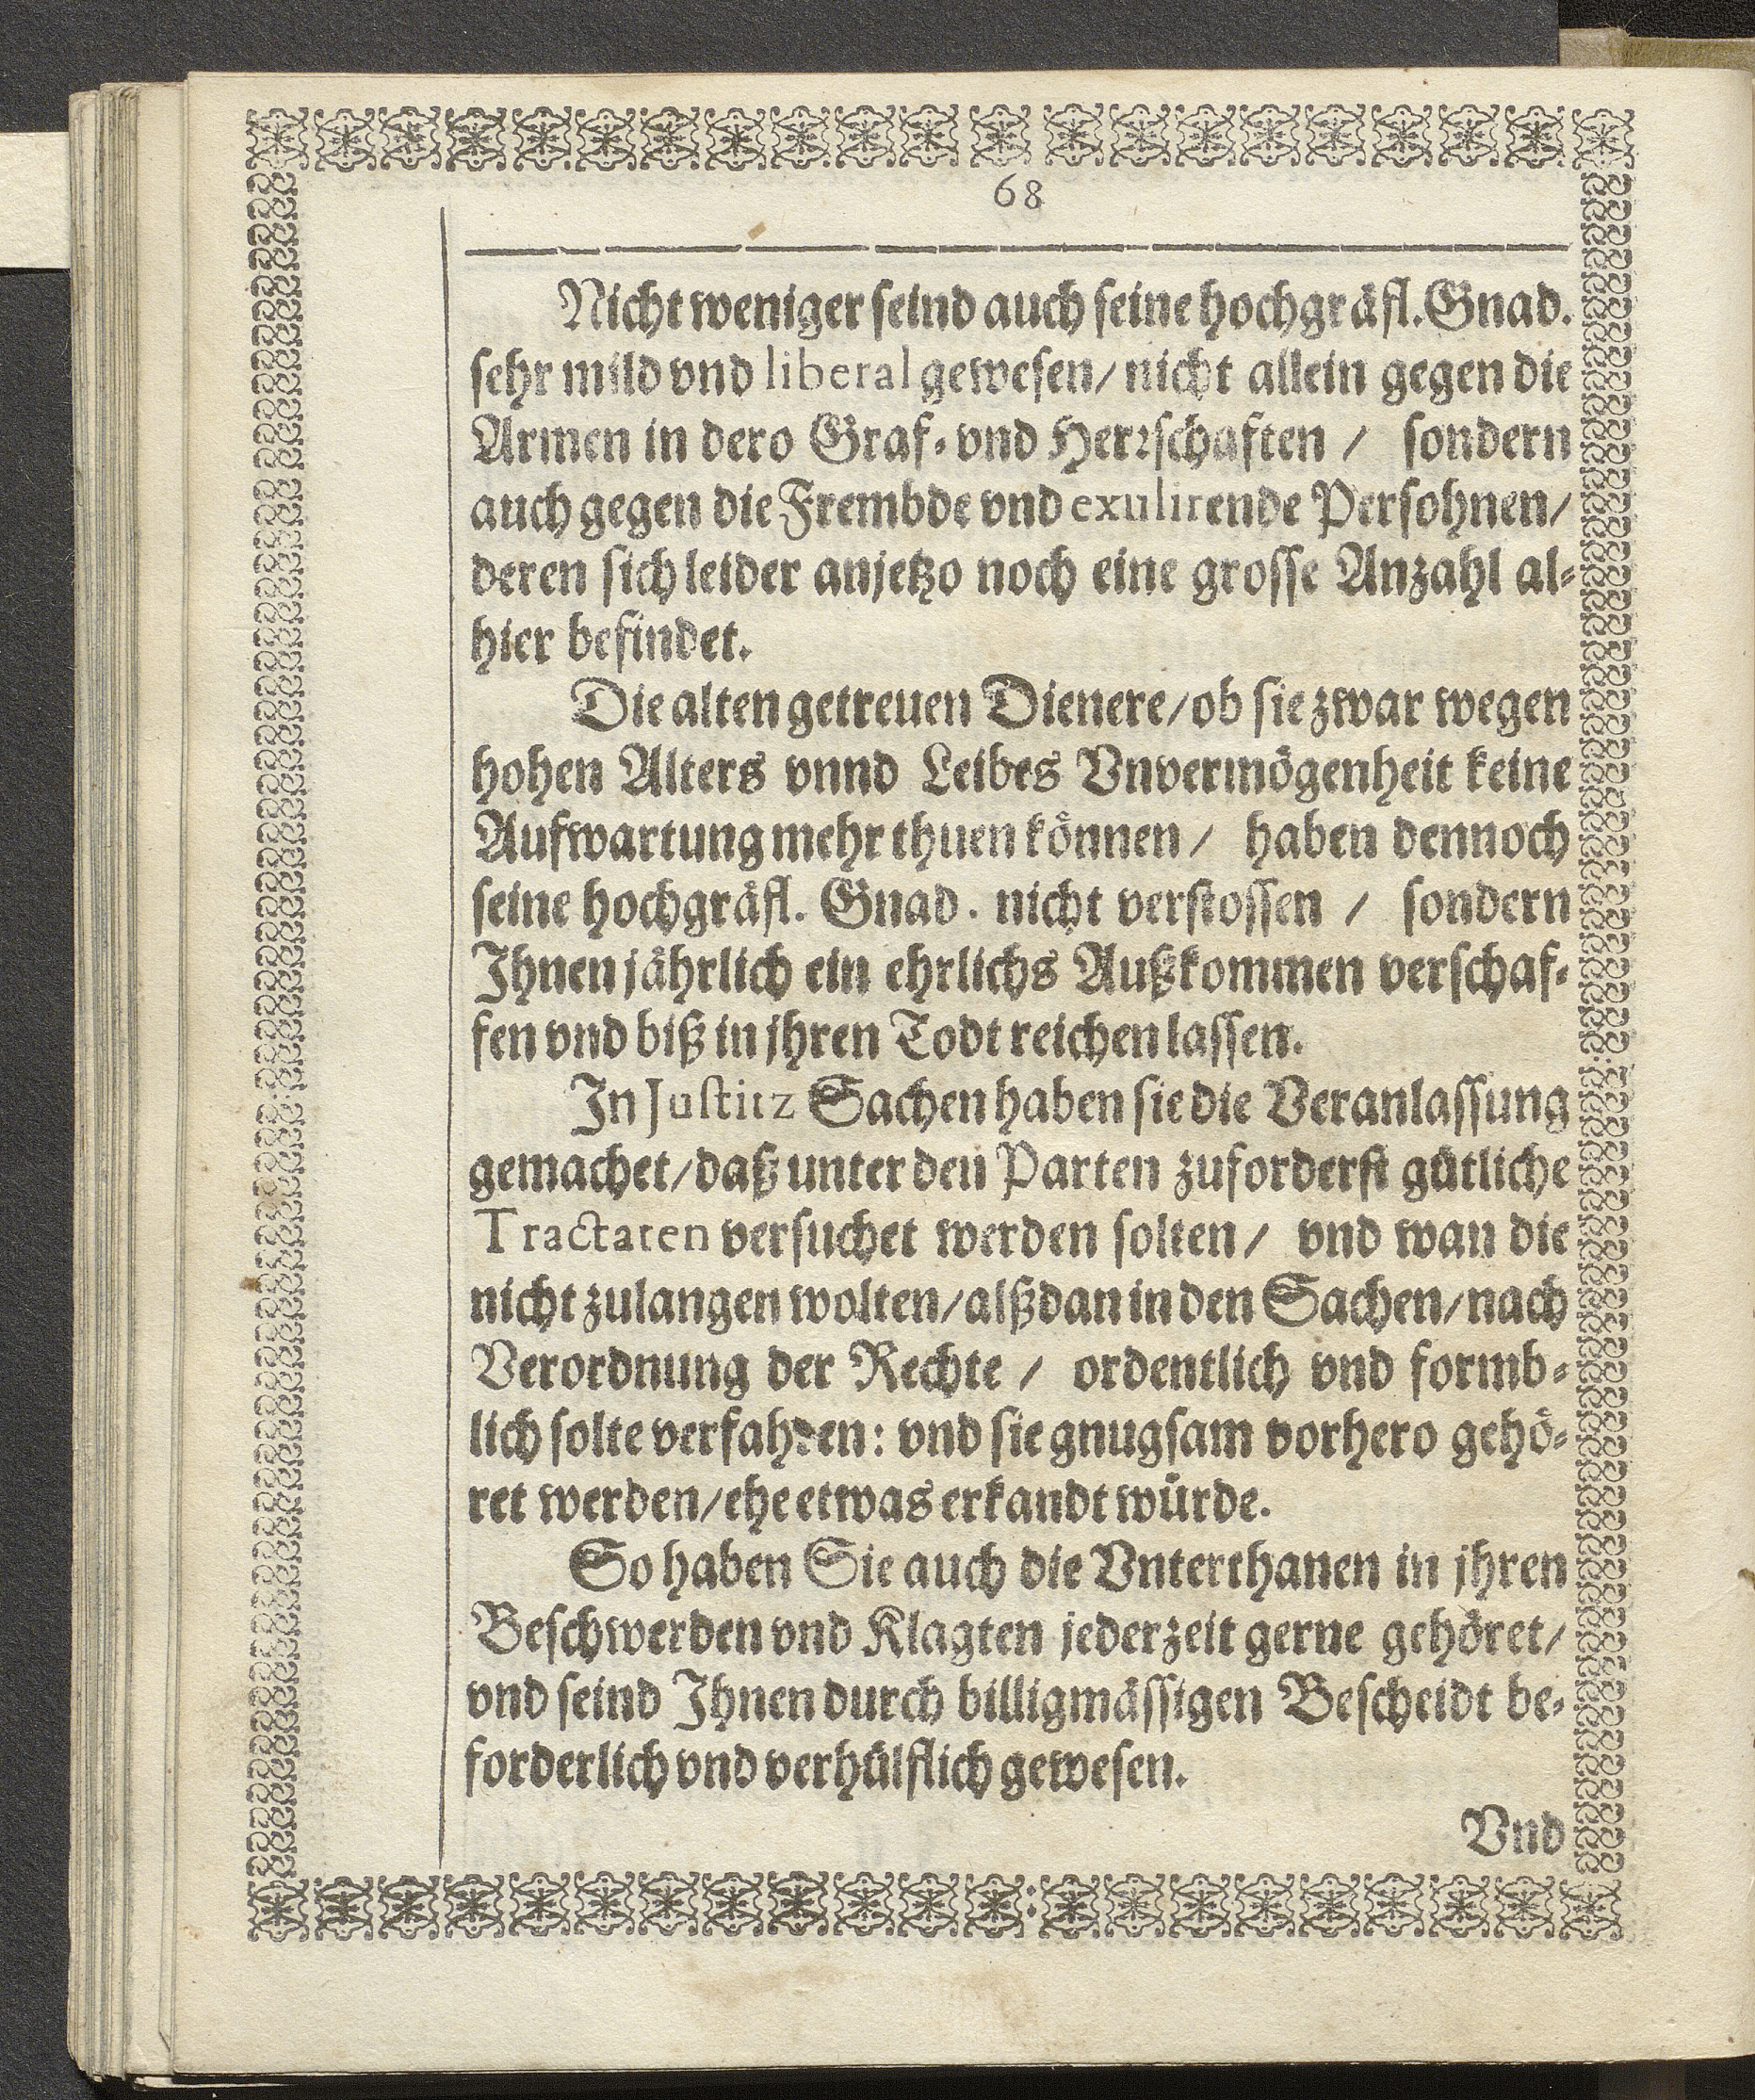 68
Nicht weniger seind auch seine hochgräfl. Gnad.
sehr mild vnd liberal gewesen/ nicht allein gegen die
Armen in dero Graf- vnd Herrschaften / sondern
auch gegen die Frembde vnd exulirende Persohnen/
deren sich leider anjetzo noch eine grosse Anzahl al-
hier befindet.
Die alten getreuen Dienere/ ob sie zwar wegen
hohen Alters vnnd Leibes Vnvermögenheit keine
Aufwartung mehr thuen können/ haben dennoch
seine hochgräfl. Gnad. nicht verstossen / sondern
Ihnen jährlich ein ehrlichs Außkommen verschaf-
fen vnd biß in jhren Todt reichen lassen.
In Justitz Sachen haben sie die Veranlassung
gemachet/ daß unter den Parten zuforderst gütliche
Tractaten versuchet werden solten/ vnd wan die
nicht zulangen wolten/ alßdan in den Sachen/ nach
Verordnung der Rechte / ordentlich vnd formb-
lich solte verfahren: vnd sie gnugsam vorhero gehö-
ret werden/ ehe etwas erkandt würde.
So haben Sie auch die Vnterthanen in jhren
Beschwerden vnd Klagten jederzeit gerne gehöret/
vnd seind Ihnen durch billigmässigen Bescheidt be-
forderlich vnd verhülflich gewesen.
Vnd